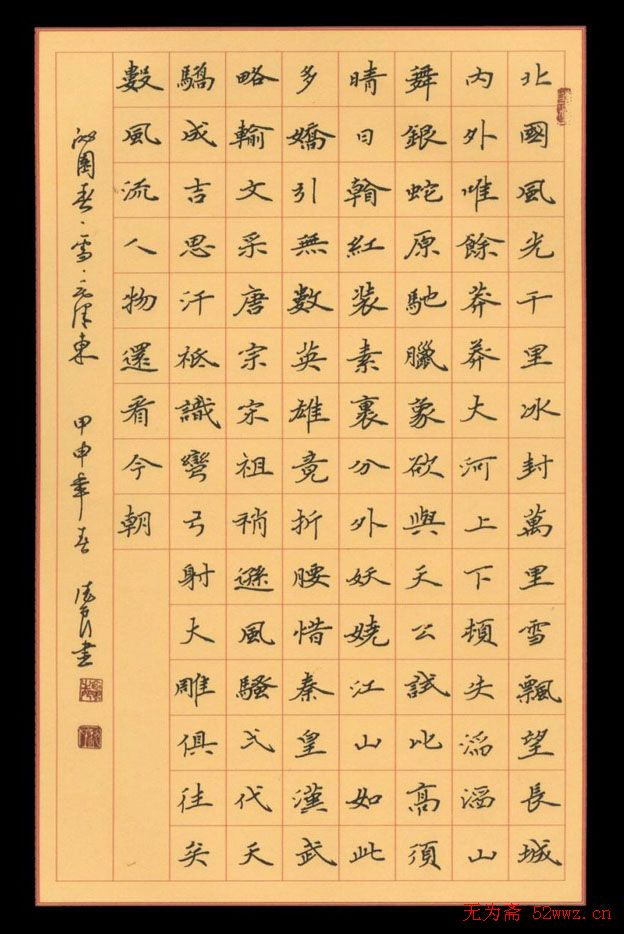 北國風光千里冰封萬里雪飄望長城
内外唯餘莽莽大河上下頓失滔滔山
舞銀蛇原馳臘象欲與天公試比高須
晴日翰紅裝素裹分外妖嬈江山如此
多嬌引無數英雄竟折腰惜秦皇漢武
略輸文采唐宗宋祖稍遜風騷弌代天
驕成吉思汗祗識彎弓射大雕俱往矣
數風流人物還看今朝
沁園春·雪·毛澤東 甲申年春 書
无为斋 52wwz.cn